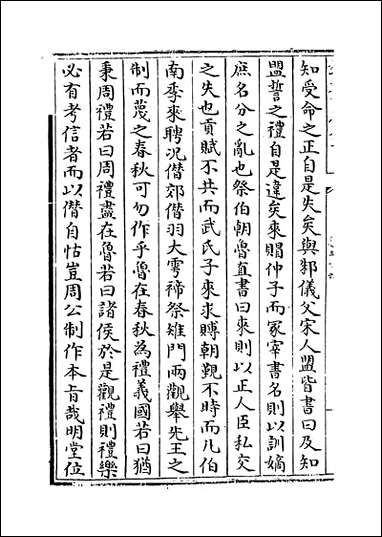 知受命之正自是失矣與邾儀父宋人盟皆書曰及知
盟誓之禮自是違矣來賵仲子而冢宰書名則以訓嫡
庶名分之亂也祭伯朝魯直書曰來則以正人臣私交
之失也貢賦不共而武氏子來求賻朝覲不時而凡伯
南季來聘況僭郊僭羽大雩禘祭雉門兩觀舉先王之
制而蔑之春秋可勿作乎魯在春秋為禮義國若曰猶
秉周禮若曰周禮盡在魯若曰諸侯於是觀禮則禮樂
必有考信者而以僭自怙豈周公制作本旨哉明堂位